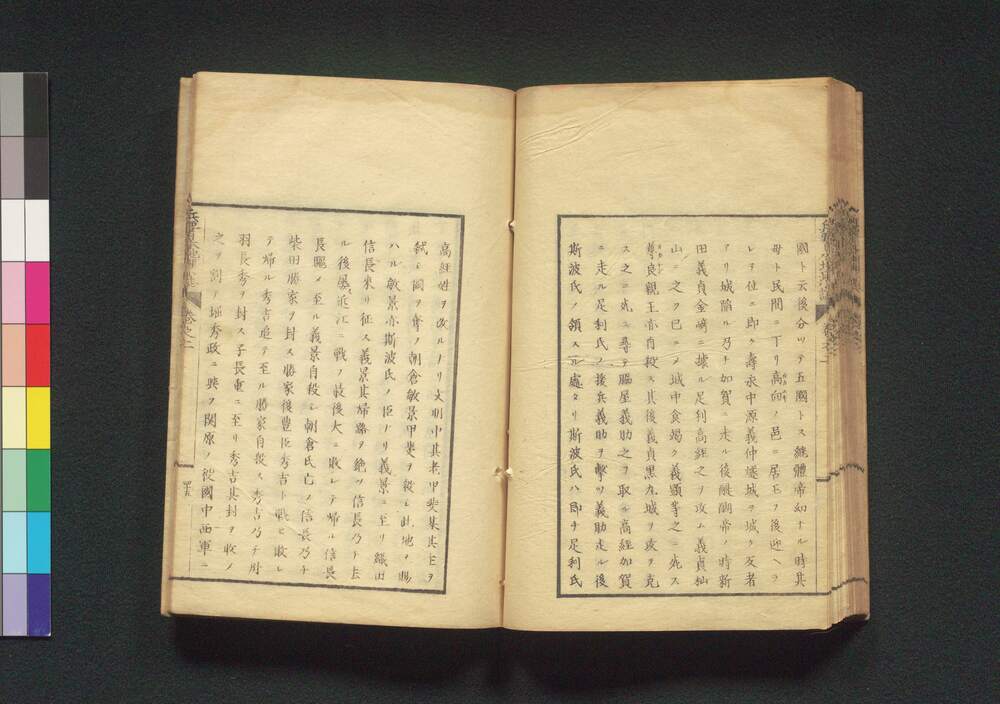 國ト云後分ツテ五國トス繼體帝幼ナル時其
母ト民間ニ下リ高向ノ邑ニ居玉フ後迎ヘラ
レテ位ニ即ク壽永中源義仲燧城ヲ城ク反者
アリ城陷ル乃チ加賀ニ走ル後醍醐帝ノ時新
田義貞金崎ニ據ル足利高經之ヲ攻ム義貞杣
山ニ之ク已ニメ城中食竭ク義顯等之ニ死ス
尊良親王亦自殺ス其後義貞黒丸城ヲ攻ヲ克
ス之ニ死ニ尋テ脇屋義助之ヲ取ル高經加賀
ニ走ル足利氏ノ援兵義助ヲ擊ツ義助走ル後
斯波氏ノ領スル處タリ斯波氏ハ即チ足利氏
高經姓ヲ改ルナリ文明中其老甲斐某其主ヲ
弑シ國ヲ奪フ朝倉敏景甲斐ヲ殺シ此地ヲ賜
ハル敏景亦斯波氏ノ臣ナリ義景ニ至リ織田
信長來リ征ス義景其婦ヲ絶ツ信長乃チ去
ル後近江ニ戰フ最後大ニ敗レテ歸ル信長
長驅メ至ル義景自殺シ朝倉氏亡フ信長乃チ
柴田勝家ヲ封ス勝家後豊臣秀吉ト戰ヒ敗レ
テ歸ル秀吉追テ至ル勝家自殺ス秀吉乃チ丹
羽長秀ヲ封ス子長重ニ至リ秀吉其封ヲ收メ
之ヲ割テ堀秀政ニ與ヲ関原ノ役國中西軍ニ
卷之二